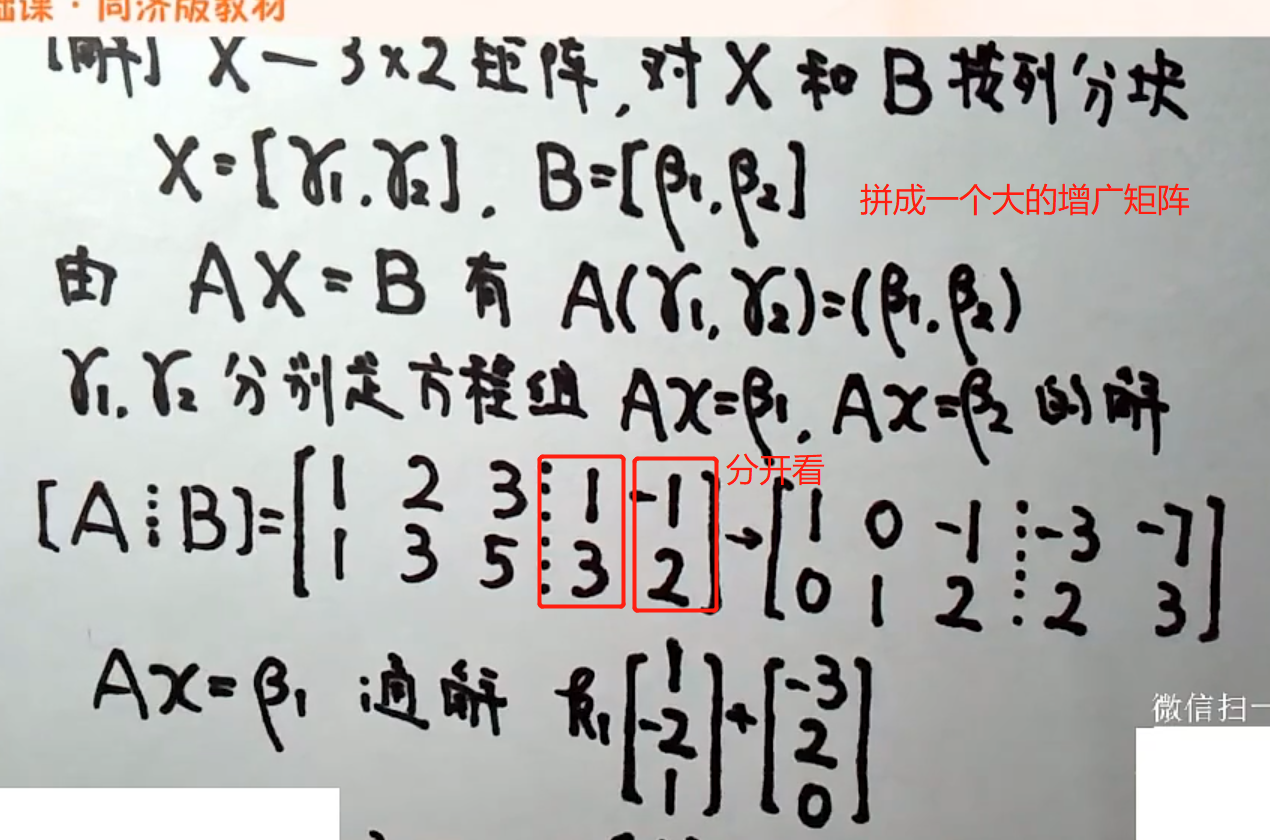 础课·同济版教材
[解] X—3×2矩阵,对X和B按列分块
X=[γ₁,γ₂], B=[β₁,β₂]
拼成一个大的增广矩阵
由 AX=B 有 A(γ₁,γ₂)=(β₁,β₂)
γ₁,γ₂分别是方程组 Ax=β₁, Ax=β₂的解
分开看
[A⋮B]=[1 2 3 ⋮ 1 -1; 1 3 5 ⋮ 3 2]→[1 0 -1 ⋮ -3 -7; 0 1 2 ⋮ 2 3]
Ax=β₁ 通解 k₁[1; -2; 1]+[-3; 2; 0]
微信扫一